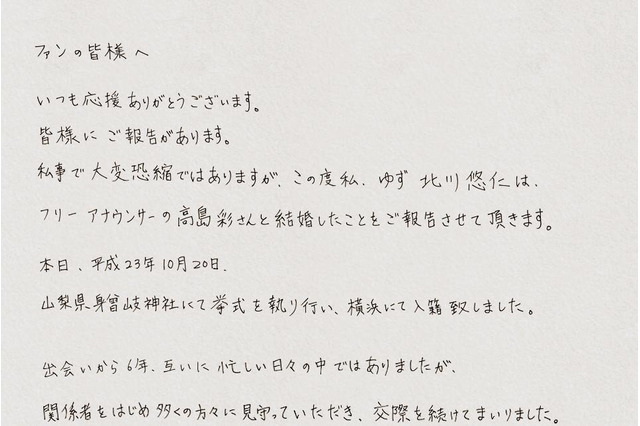 ファンの皆様へ
いつも応援ありがとうございます。
皆様にご報告があります。
私事で大変恐縮ではありますが、この度私、ゆず 北川悠仁は、
フリーアナウンサーの高島彩さんと結婚したことをご報告させて頂きます。
本日、平成23年10月20日、
山梨県身曾岐神社にて挙式を執り行い、横浜にて入籍致しました。
出会いから6年、互いに忙しい日々の中ではありましたが、
関係者をはじめ多くの方々に見守っていただき、交際を続けてまいりました。